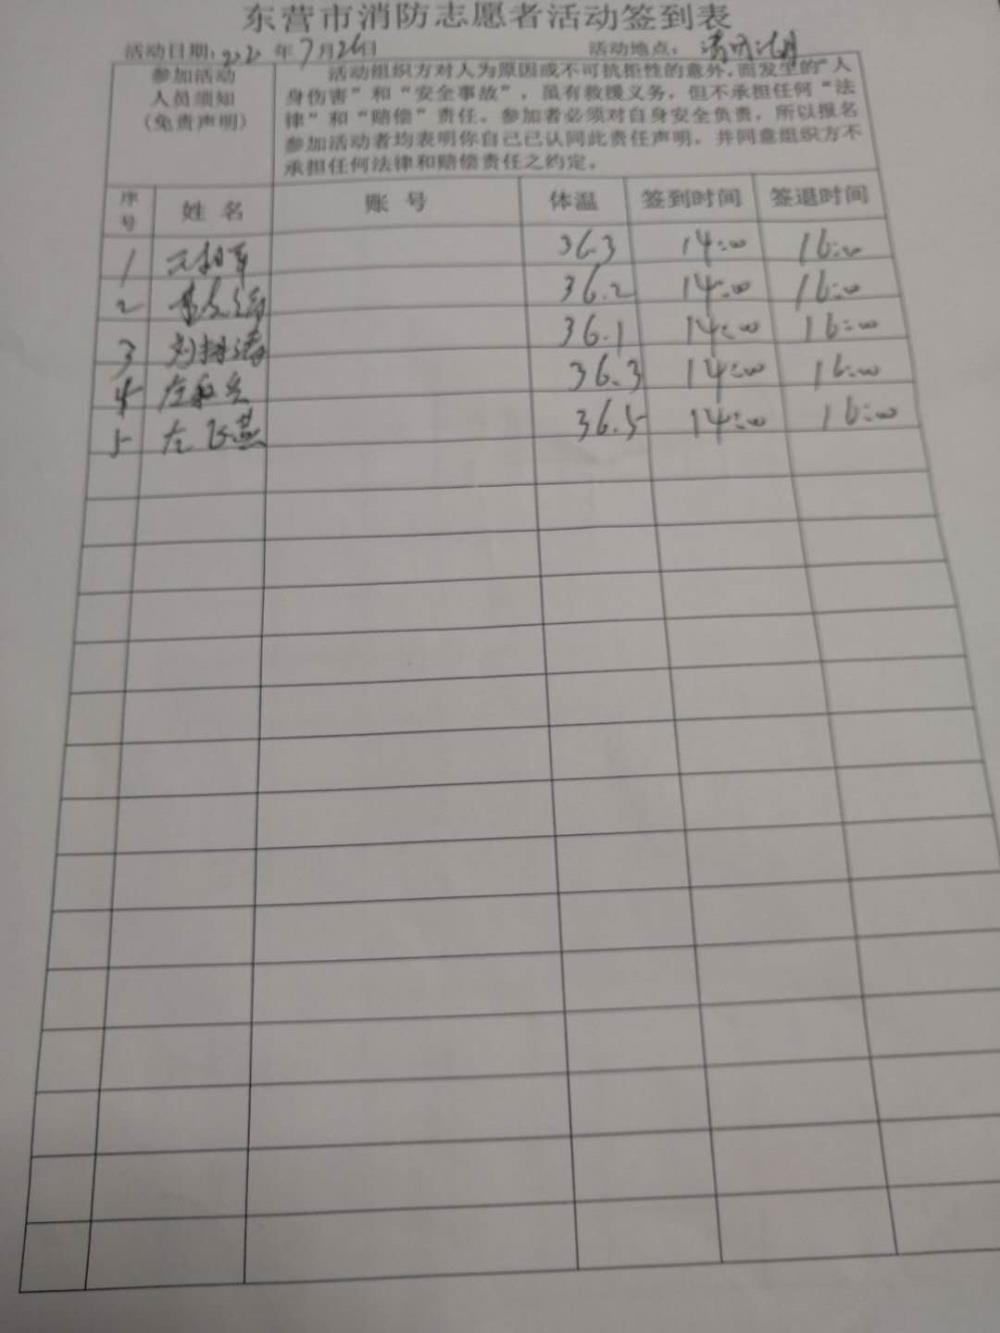 东营市消防志愿者活动签到表
活动日期: 年7月26日 活动地点:
参加活动
人员须知
(免责声明)
活动组织方对人为原因或不可抗拒性的意外,而发生的“人
身伤害”和“安全事故”,虽有救援义务,但不承担任何“法
律”和“赔偿”责任。参加者必须对自身安全负责,所以报名
参加活动者均表明你自己已认同此责任声明,并同意组织方不
承担任何法律和赔偿责任之约定。
序号 姓名 账号 体温 签到时间 签退时间
1 36.3 14:00 16:00
2 36.2 14:00 16:00
3 36.1 14:00 16:00
4 36.3 14:00 16:00
5 左飞燕 36.5 14:00 16:00